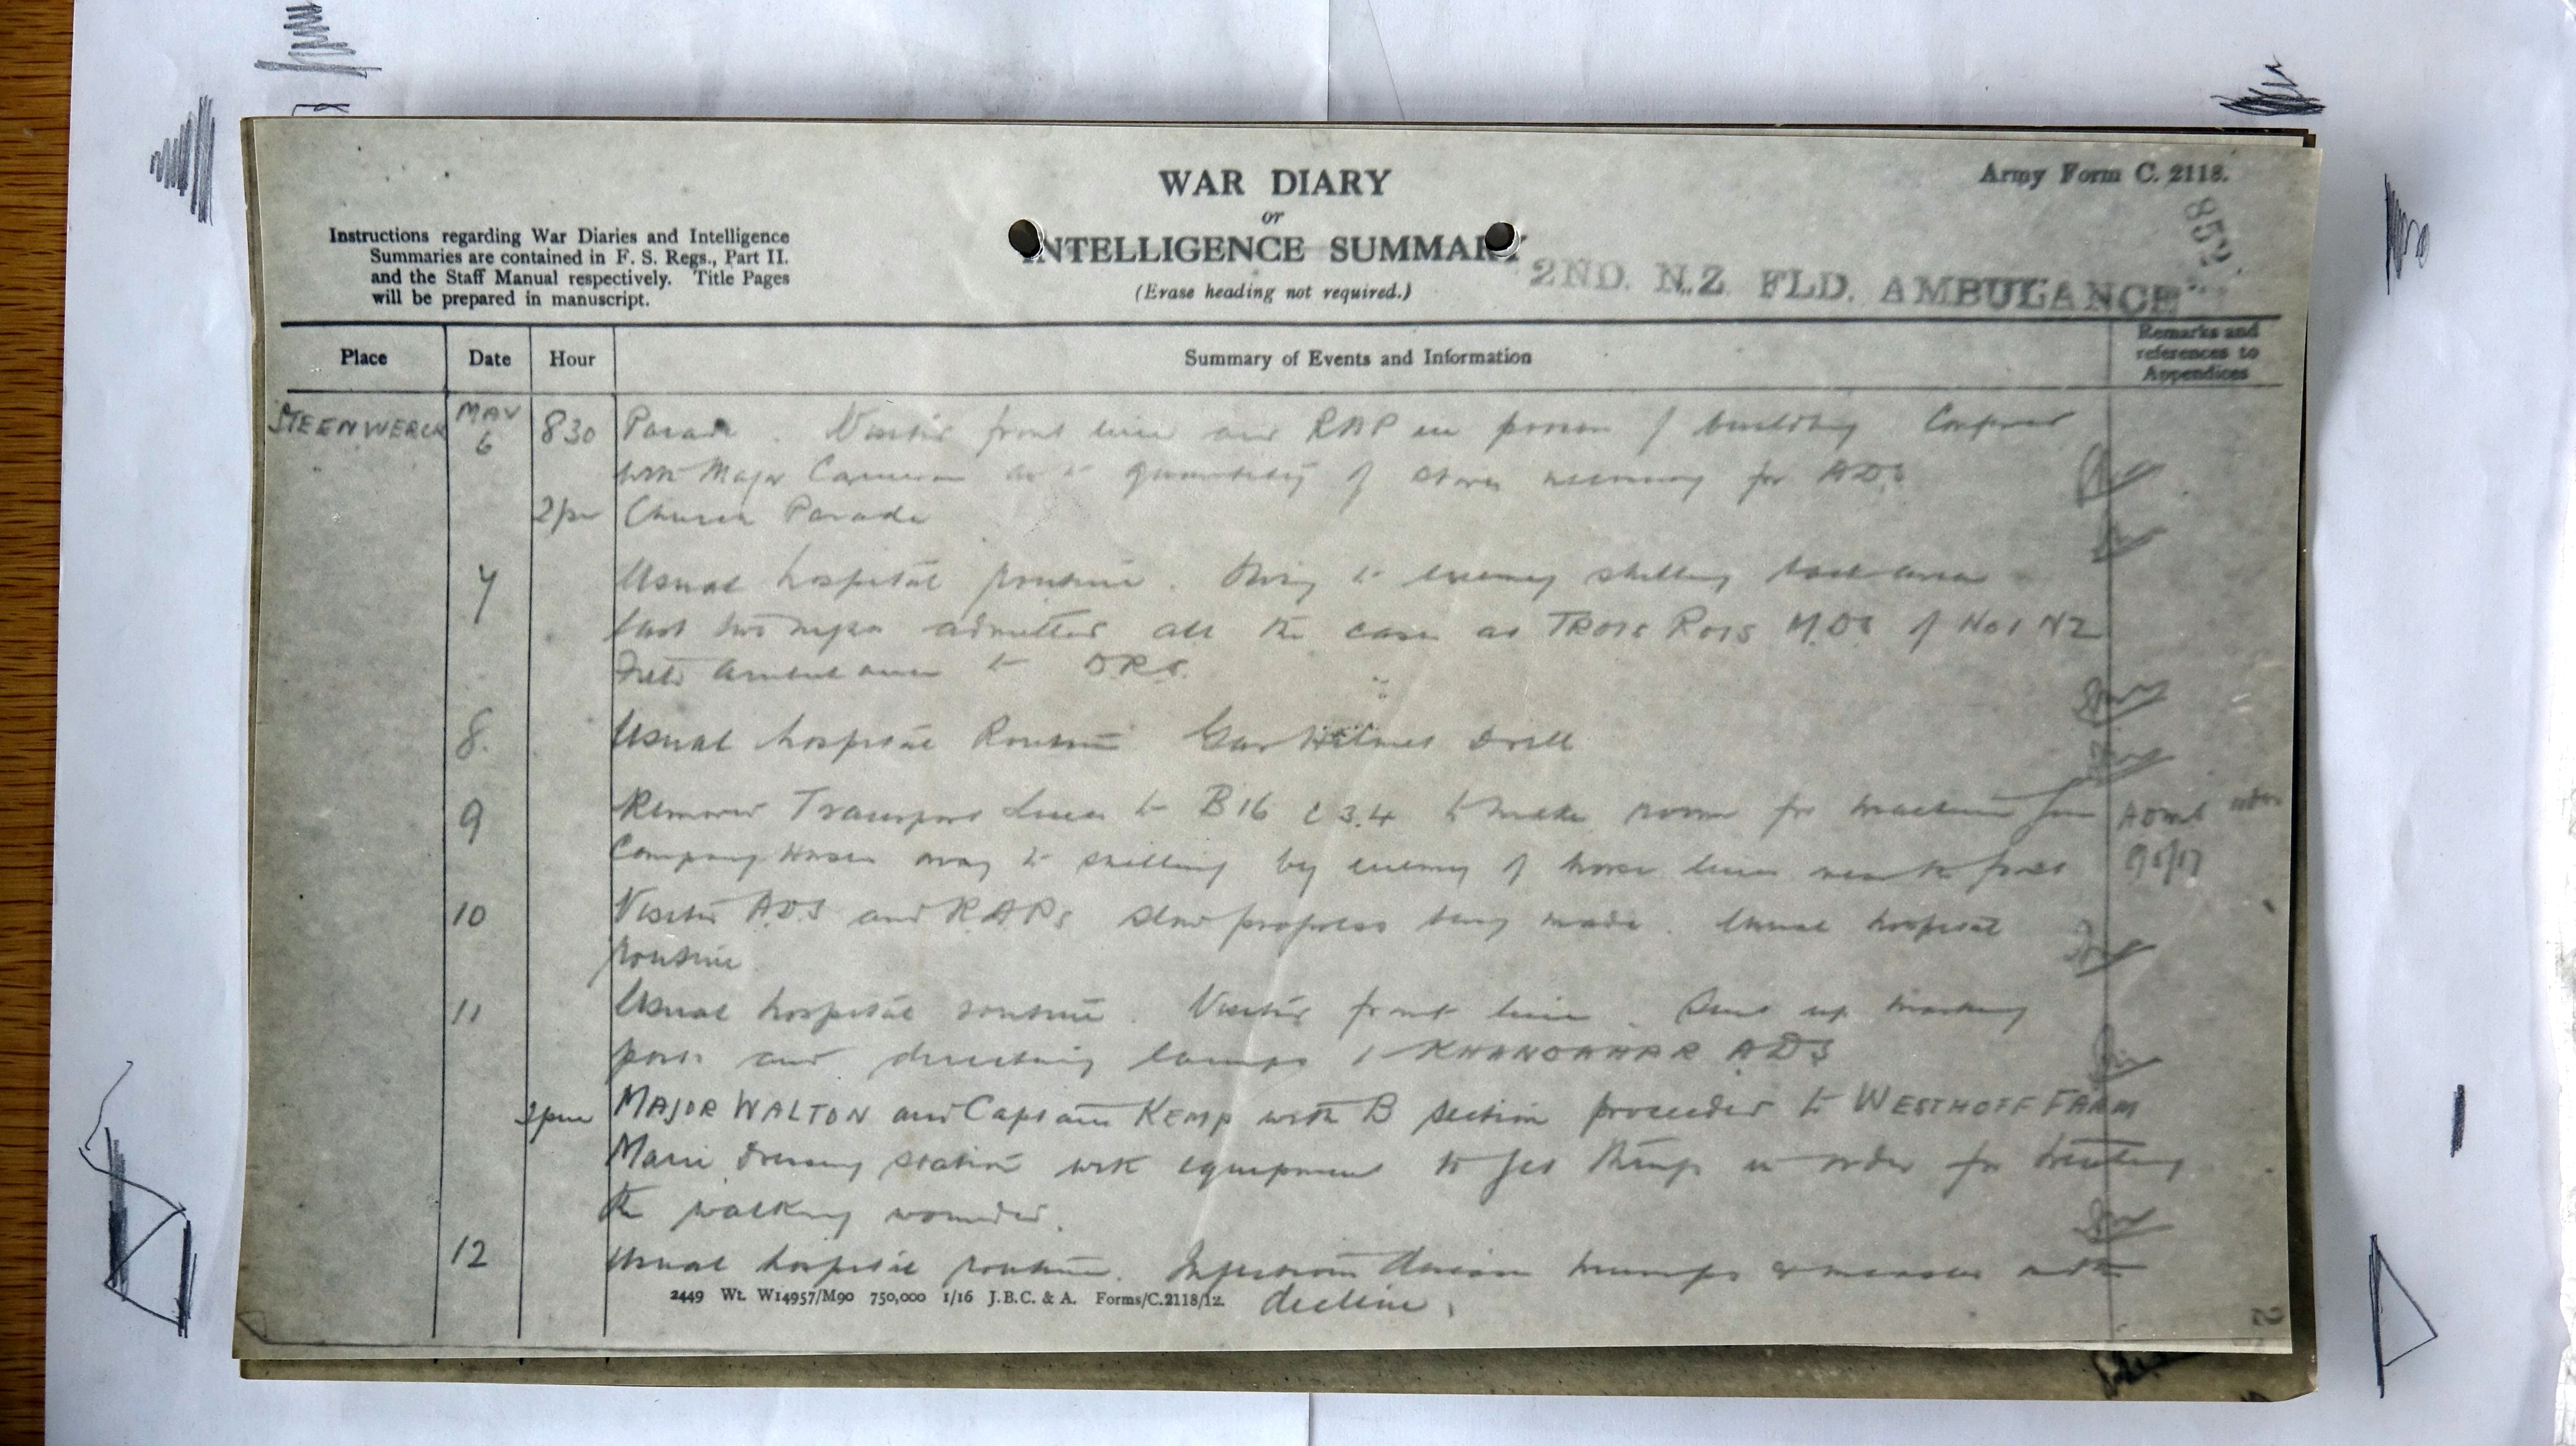 WAR DIARY
or
INTELLIGENCE SUMMARY
(Erase heading not required.)
Army Form C. 2118.
Instructions regarding War Diaries and Intelligence
Summaries are contained in F. S. Regs., Part II.
and the Staff Manual respectively. Title Pages
will be prepared in manuscript.
2ND. N.Z. FLD. AMBULANCE
Place Date Hour Summary of Events and Information Remarks and
references to
Appendices
STEENWERCK MAY 6 830 Parade. Visited front line and RAP in process of building Conferred
with Major Cameron as to quantity of stores necessary for ADS
2pm Church Parade
7 Usual hospital routine. Owing to enemy shelling back area
last two nights admitted all the cases at TROIS ROIS M.DS of No 1 NZ
Field Ambulance to DRS.
8. Usual hospital Routine Gas Helmet Drill
9 Removed Transport Lines to B16 c 3.4 to make room for machine gun
Company Horses owing to shelling by enemy of horse lines near the front
9/5/17
10 Visited ADS and RAPs slow progress being made. Usual hospital
routine.
11 Usual hospital routine. Visited front line. Sent up marking
posts and directing lamps to KHANDAHAR ADS
2pm MAJOR WALTON and Captain KEMP with B Section proceeded to WESTHOFF FARM
Main Dressing Station with equipment to get things in order for treating
the walking wounded.
12 Usual hospital routine. Infectious disease mumps & measles on the
decline.
2449 Wt. W14957/M90 750,000 1/16 J.B.C. & A. Forms/C.2118/12.